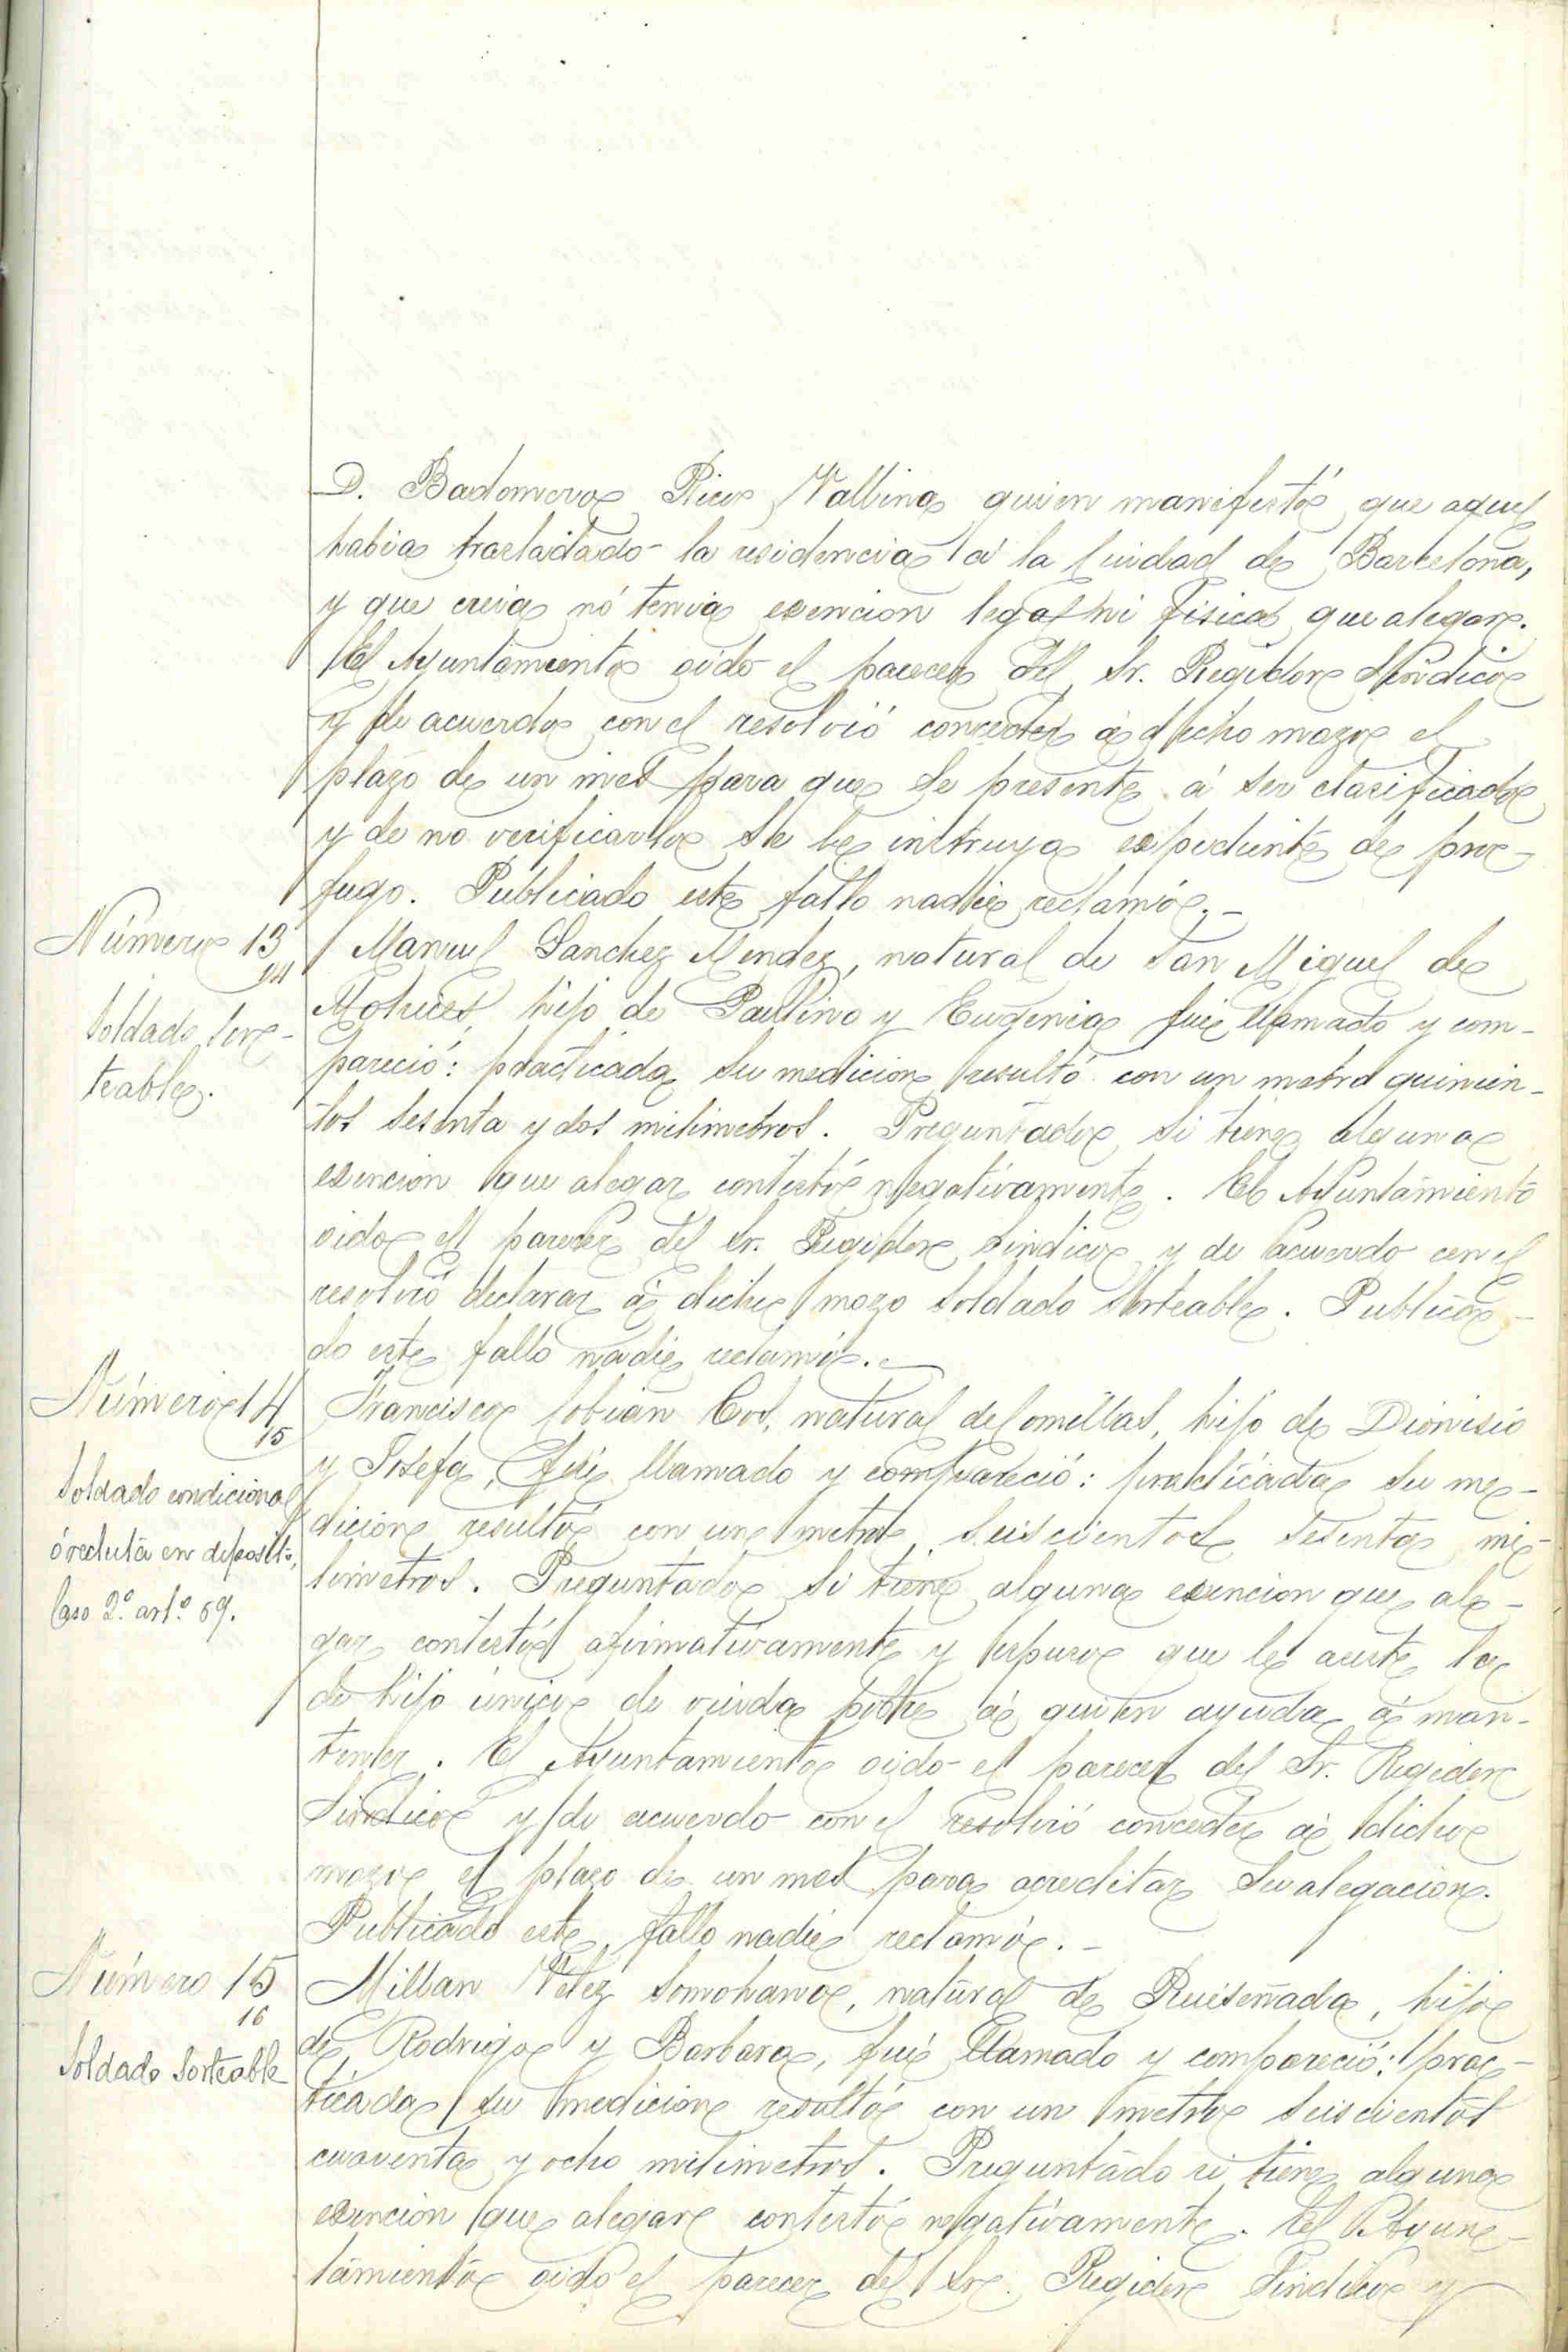 D. Badomero Rico Vallina quien manifestó que aquel
habia trasladado la residencia á la Ciudad de Barcelona,
y que creia nó tenia esencion legal ni física que alegar.
El Ayuntamiento oido el parecer del Sr. Regidor Síndico
y de acuerdo con el resolvió conceder á dicho mozo el
plazo de un mes para que se presente á ser clasificado
y de no verificarlo se le instruya espediente de pro-
fugo. Publicado este fallo nadie reclamó.-
Número 13
14
Soldado Sor-
teable.
Manuel Sanchez Mendez, natural de San Miguel de
hijo de Paulino y Eugenia fué llamado y com-
pareció: practicada su medicion resultó con un metro quinien-
tos sesenta y dos milimetros. Preguntado si tiene alguna
esencion que alegar contestó negativamente. El Ayuntamiento
oido el parecer del Sr. Regidor Sindico y de acuerdo con el
resolvió declarar á dicho mozo soldado sorteable. Publica-
do este fallo nadie reclamó.-
Número 14
15
Soldado condicional
ó recluta en deposito,
Caso 2.º art.º 69.
Francisco Cobian Cos, natural de Comillas, hijo de Dionisio
y Josefa, fué llamado y compareció: practicada su me-
dicion resultó con un metro seiscientos sesenta mi-
limetros. Preguntado si tiene alguna esencion que ale-
gar contestó afirmativamente y espuso que le asiste la
de hijo único de viuda pobre á quien ayuda á man-
tener. El Ayuntamiento oido el parecer del Sr. Regidor
Sindico y de acuerdo con el resolvió conceder á dicho
mozo el plazo de un mes para acreditar su alegacion.
Publicado este fallo nadie reclamó.-
Número 15
16
Soldado Sorteable
Millan Velez Somohano, natural de Ruiseñada, hijo
de Rodrigo y Barbara, fué llamado y compareció: prac-
ticada su medicion resultó con un metro seiscientos
cuarenta y ocho milimetros. Preguntado si tiene alguna
esencion que alegar contestó negativamente. El Ayun-
tamiento oido el parecer del Sr. Regidor Sindico y